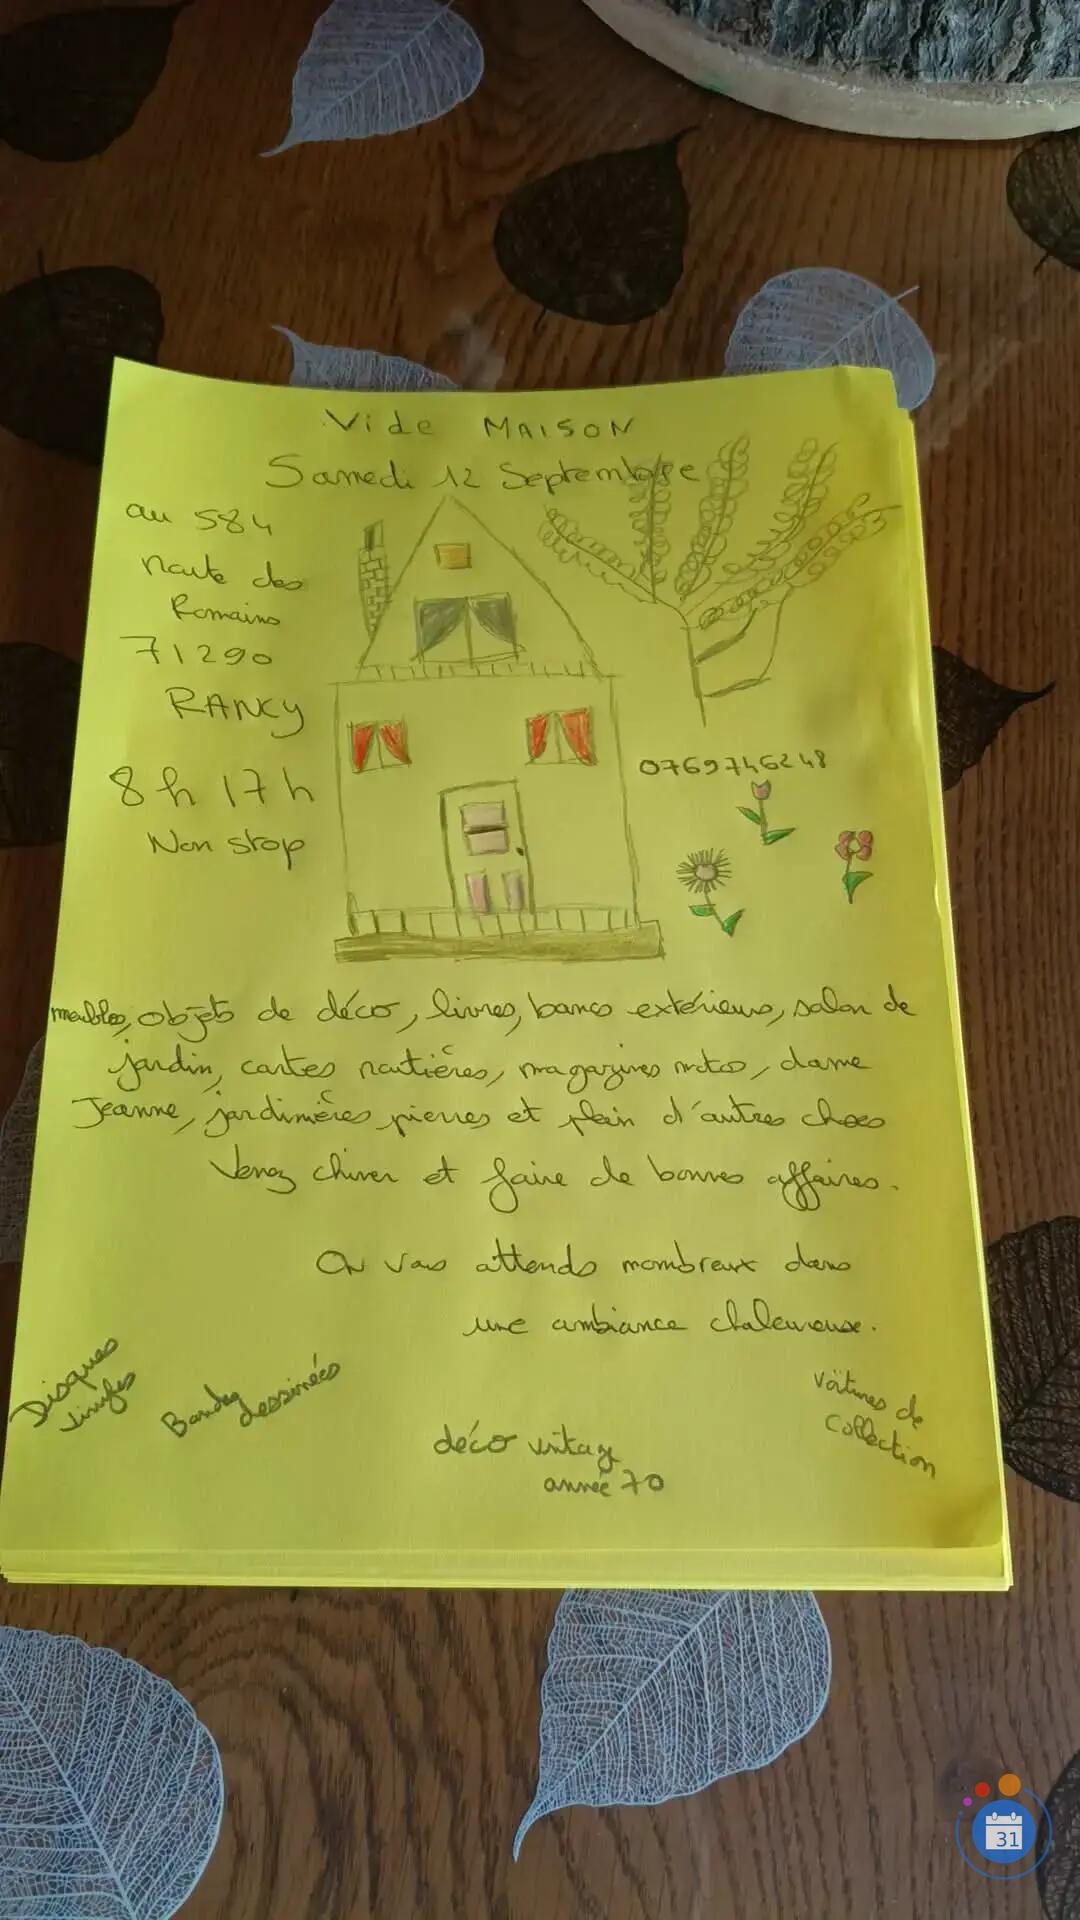 Vide MAISON
Samedi 12 Septembre
au 584
route des
Romains
71290
RANCY
8h 17h
Non stop
0769746248
meubles, objets de déco, livres, bancs extérieurs, salon de
jardin, cartes routières, magazines motos, dame
Jeanne, jardinières pierres et plein d'autres choses
Venez chiner et faire de bonnes affaires.
On vous attends nombreux dans
une ambiance chaleureuse.
Disques
vinyles
Bandes
dessinées
voitures de
collection
déco vintage
année 70
31